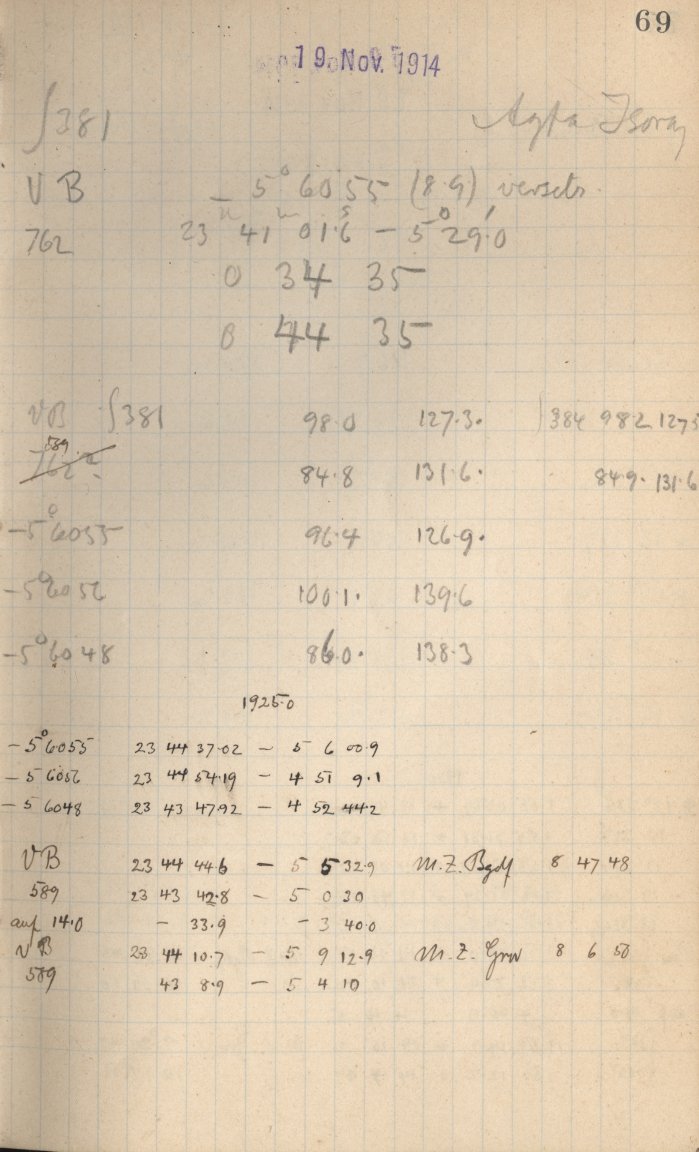 69
19 Nov. 1914
∫381 Agfa Isorap
VB − 5° 6055 (8.9) versets.
762 23h 41m 01.6s − 5° 29'.0
0 34 35
0 44 35
VB ∫381 98.0 127.3. ∫384 98.2 127.5
589 84.8 131.6. 84.9. 131.6
−5° 6055 96.4 126.9.
−5° 6056 100.1. 139.6
−5° 6048 86.0. 138.3
1925.0
−5° 6055 23 44 37.02 − 5 6 00.9
−5 6056 23 44 54.19 − 4 51 9.1
−5 6048 23 43 47.92 − 4 52 44.2
VB 23 44 44.6 − 5 5 32.9 M.Z. Bgdf 8 47 48
589 23 43 42.8 − 5 0 30
auf 14.0 − 33.9 − 3 40.0
VB 23 44 10.7 − 5 9 12.9 M.Z. Grw 8 6 50
589 43 8.9 − 5 4 10